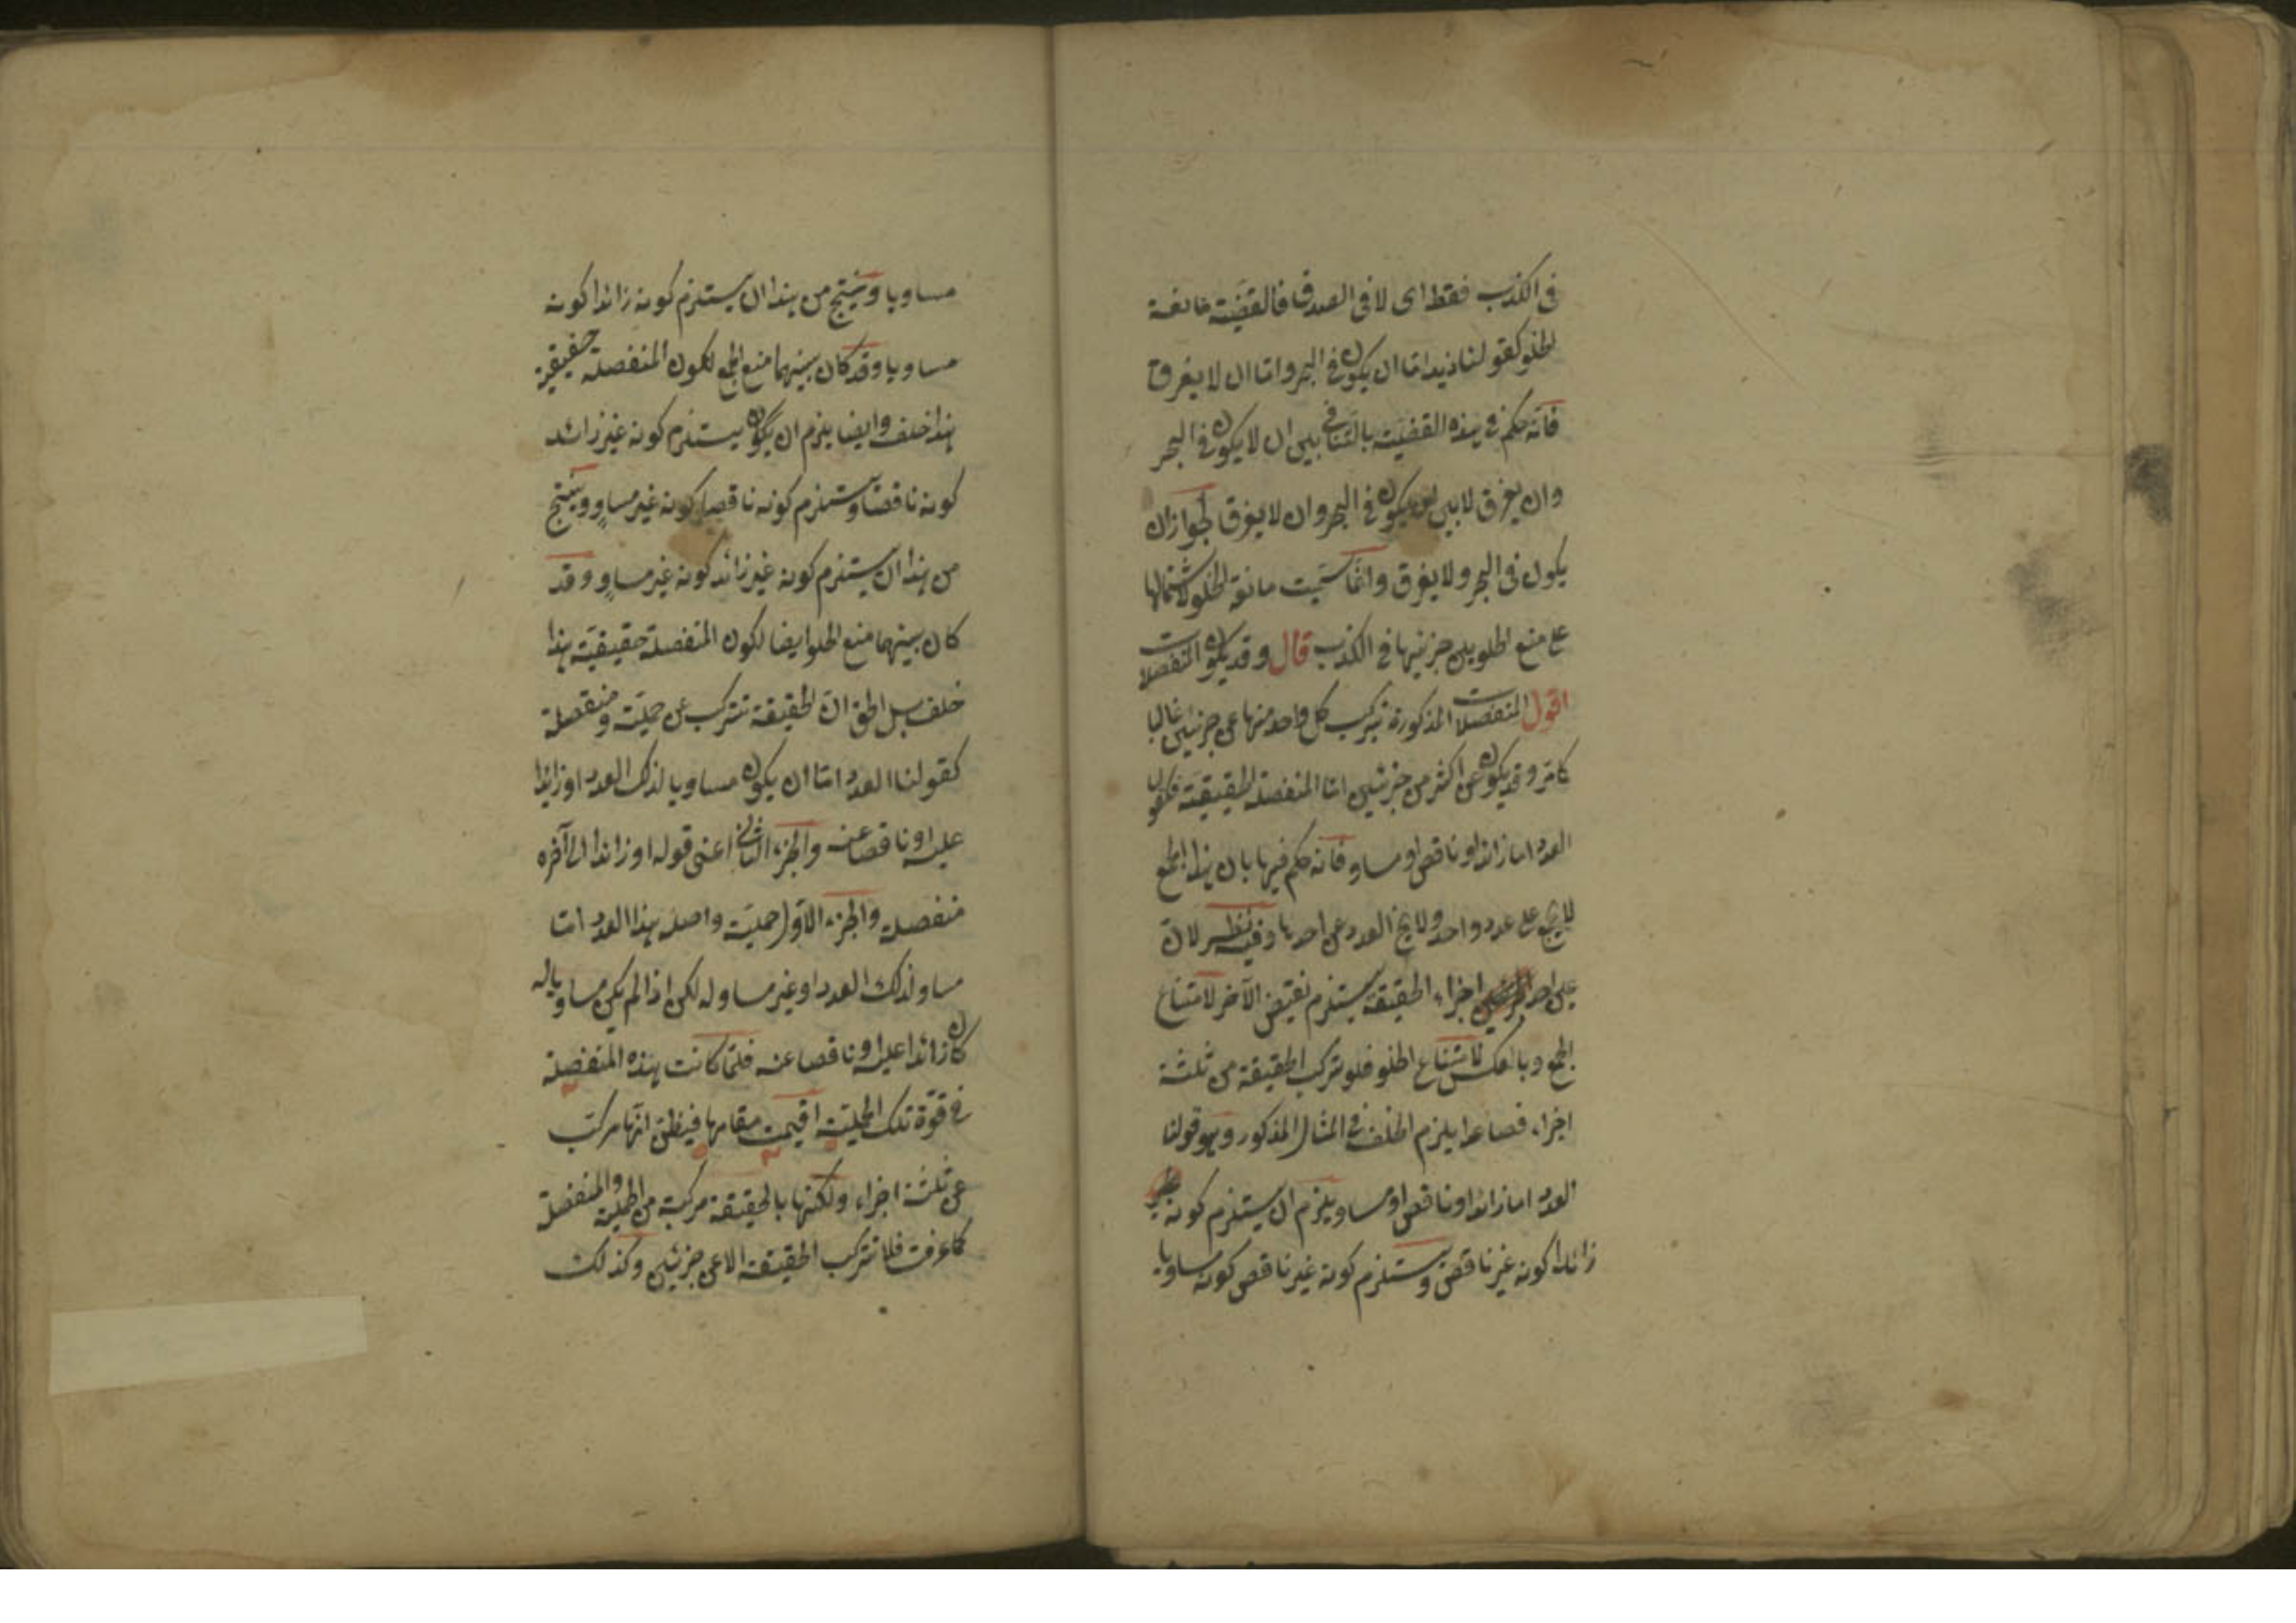 في الكذب فقط اى لا في الصدق فالقضيّة مانعة
الخلو كقولنا زيد امّا ان يكون في البحر وامّا ان لا يغرق
فانّه حكم في هذه القضيّة بالتّنافي بين ان لا يكون في البحر
وان يغرق لا بين ان يكون في البحر وان لا يغرق لجواز ان
يكون في البحر ولا يغرق وانّما سمّيت مانعة الخلو لاشتمالها
على منع الخلو بين جزئيها في الكذب قال وقد يكون المنفصلات
اقول المنفصلات المذكورة تتركب كل واحد منها عن جزئين غالبا
كما مر وقد يكون عن اكثر من جزئين امّا المنفصلة الحقيقيّة فكقولنا
العدد اما زائد او ناقص او مساو فانه حكم فيها بان هذا الجمع
لا يجمع على عدد واحد ولا يخ العدد عن احدها وفيه نظر لانّ
عين احد اجزاء الحقيقة يستلزم نقيض الآخر لامتناع
الجمع وبالعكس لامتناع الخلو فلو تركب الحقيقة من ثلثة
اجزاء فصاعدا يلزم الخلف في المثال المذكور وهو قولنا
العدد اما زائد او ناقص او مساو يلزم ان يستلزم كونه
زائدا كونه غير ناقص ويستلزم كونه غير ناقص كونه مساويا
مساويا وينتج من هذا ان يستلزم كونه زائدا كونه
مساويا وقد كان بينهما منع الجمع لكون المنفصلة حقيقية
هذا خلف وايضا يلزم ان يكون يستلزم كونه غير زائد
كونه ناقصا ويستلزم كونه ناقصا كونه غير مساوٍ وينتج
من هذا ان يستلزم كونه غير زائد كونه غير مساوٍ وقد
كان بينهما منع الخلو ايضا لكون المنفصلة حقيقيّة هذا
خلف بل الحق انّ الحقيقة تتركب عن حمليّة ومنفصلة
كقولنا العدد امّا ان يكون مساويا لذلك العدد او زائدا
عليه او ناقصا عنه والجزء الثاني اعنى قوله او زائدا الى آخره
منفصلة والجزء الاوّل حمليّة واصله هذا العدد امّا
مساو لذلك العدد او غير مساو له لكن اذا لم يكن مساويا له
كان زائدا عليه او ناقصا عنه فلمّا كانت هذه المنفصلة
في قوّة تلك الحمليّة اقيمت مقامها فيظنّ انّها مركّب
عن ثلثة اجزاء ولكنّها بالحقيقة مركبة من الحملية والمنفصلة
كما عرفت فلا تتركب الحقيقة الا عن جزئين وكذلك